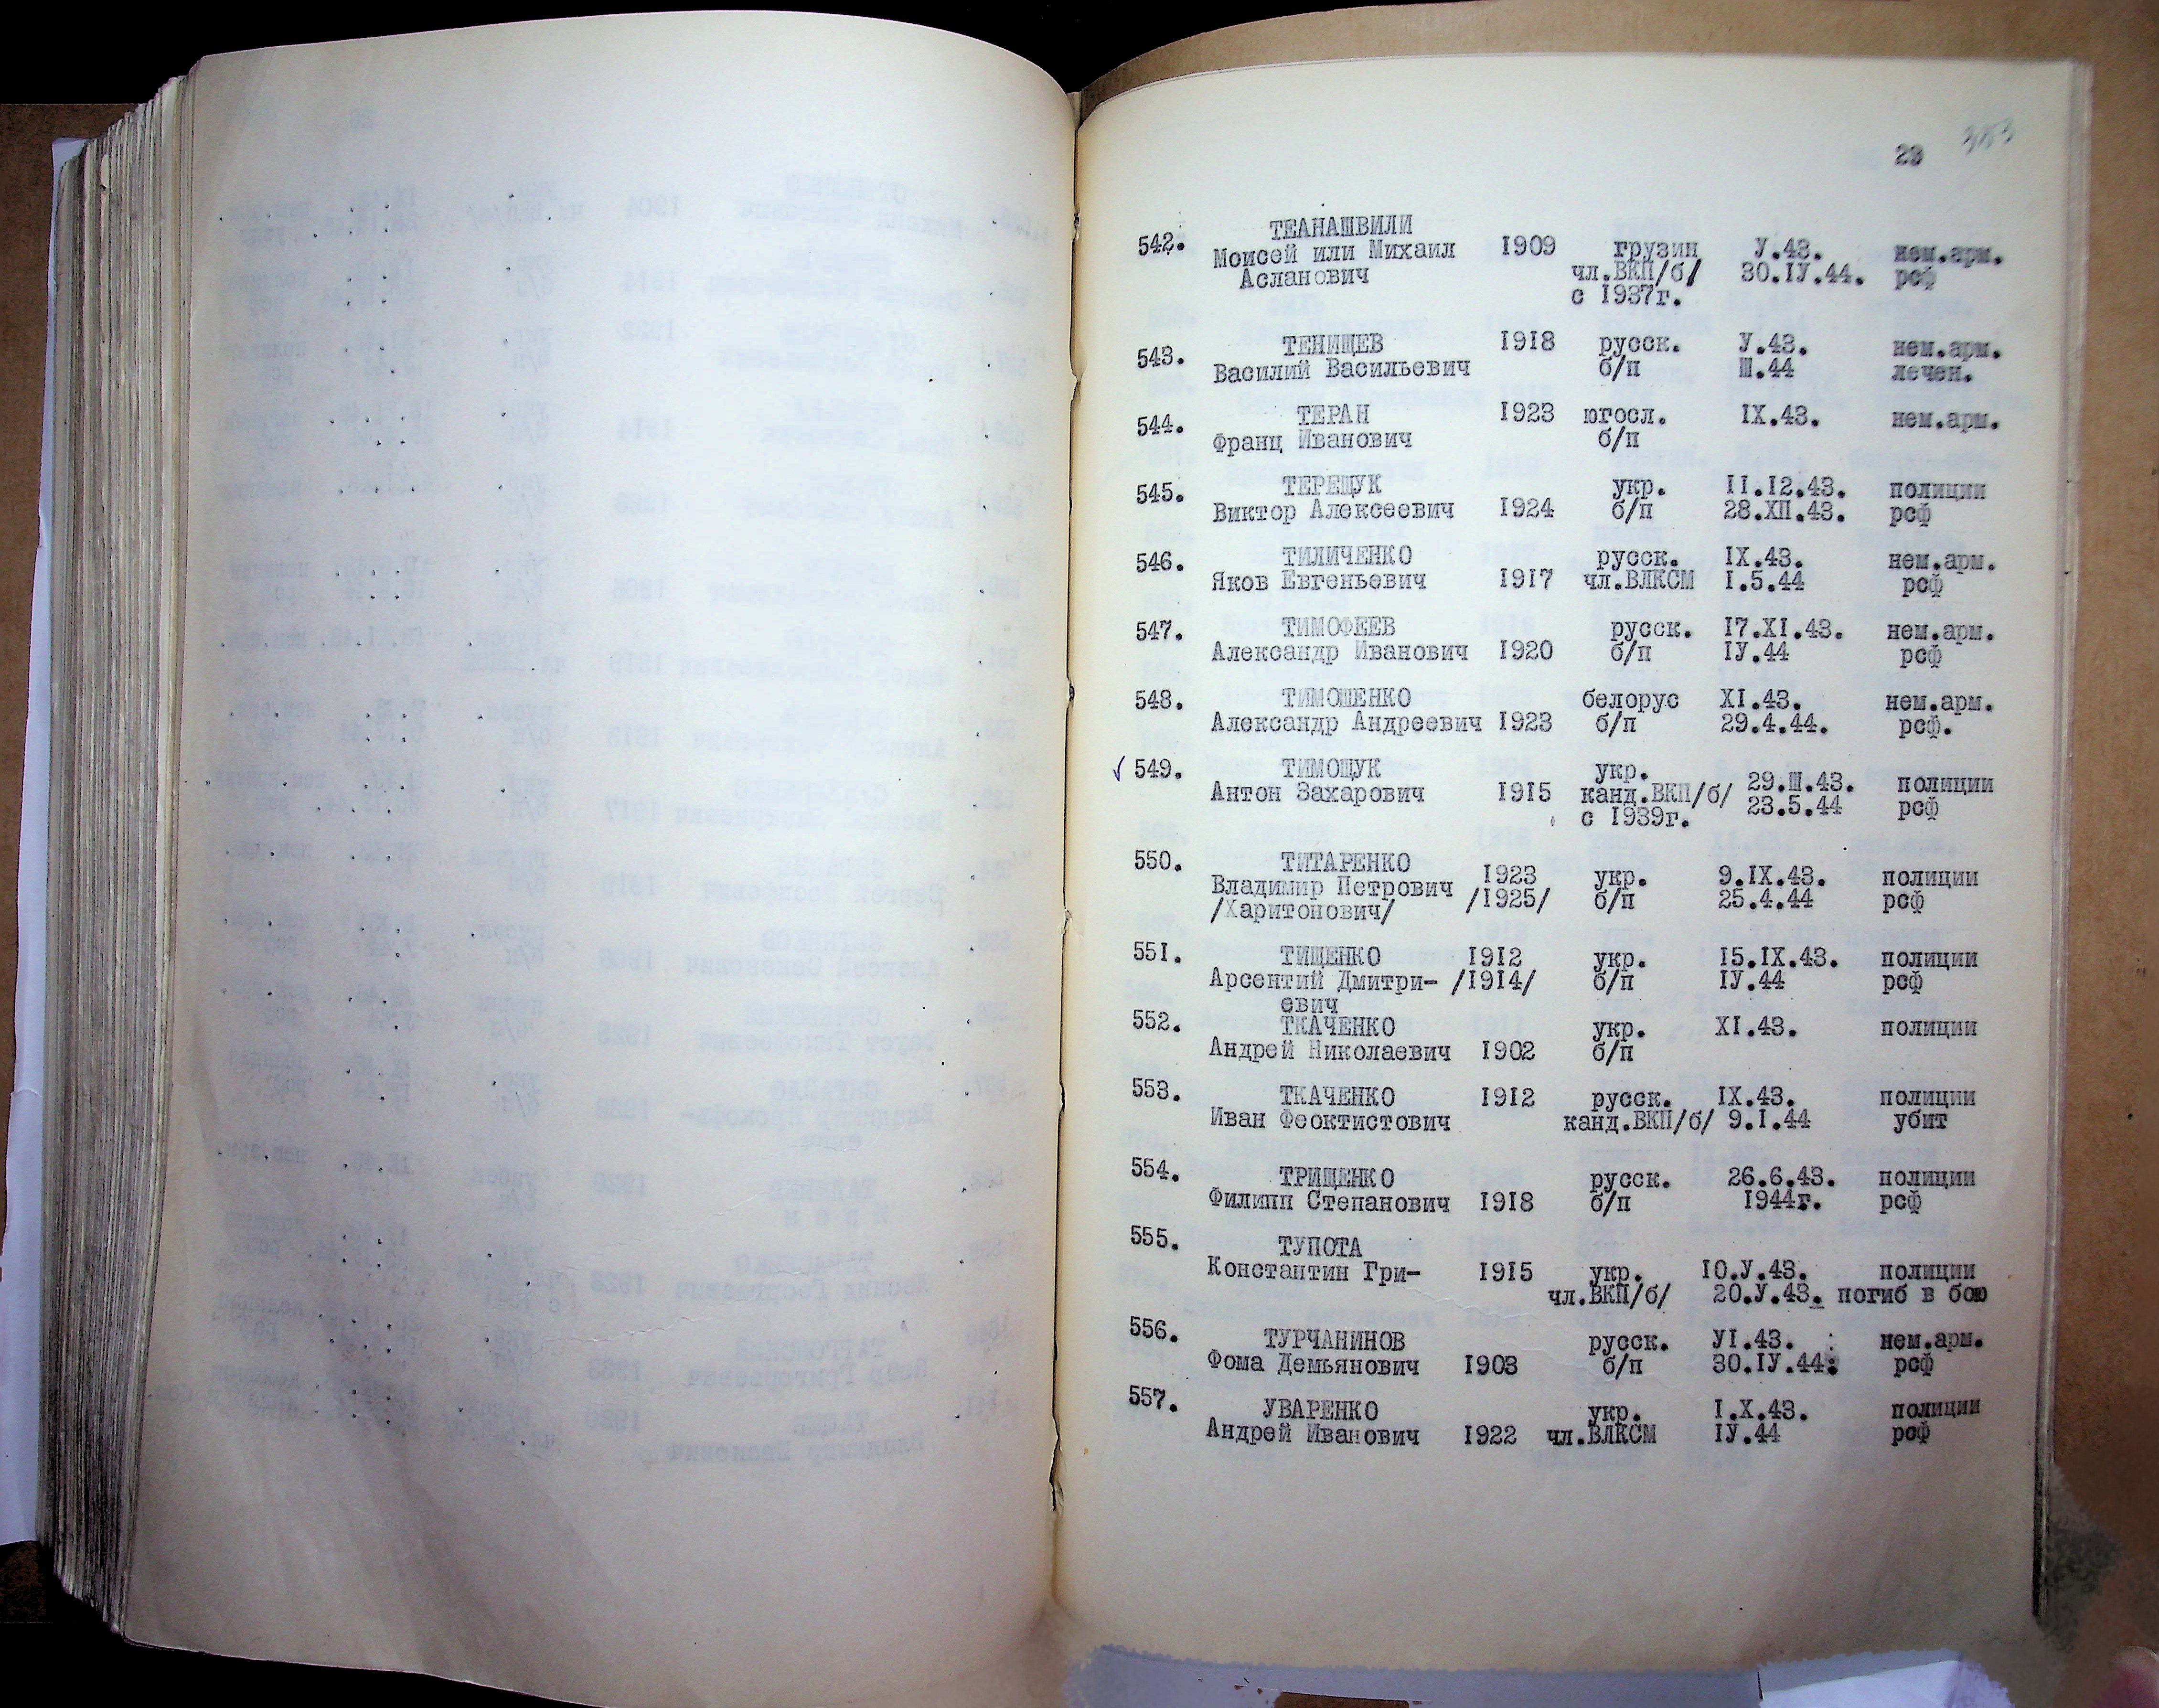 383
23
542. ТЕАНАШВИЛИ
Моисей или Михаил 1909 грузин У.43. нем.арм.
Асланович чл.ВКП/б/ 30.IУ.44. рсф
с 1937г.
543. ТЕНИЩЕВ 1918 русск. У.43. нем.арм.
Василий Васильевич б/п Ш.44 лечен.
544. ТЕРАН 1923 югосл. IX.43. нем.арм.
Франц Иванович б/п
545. ТЕРЕЩУК укр. II.I2.43. полиции
Виктор Алексеевич 1924 б/п 28.ХП.43. рсф
546. ТИЛИЧЕНКО русск. IX.43. нем.арм.
Яков Евгеньевич 1917 чл.ВЛКСМ I.5.44 рсф
547. ТИМОФЕЕВ русск. I7.XI.43. нем.арм.
Александр Иванович 1920 б/п IУ.44 рсф
548. ТИМОШЕНКО белорус XI.43. нем.арм.
Александр Андреевич 1923 б/п 29.4.44. рсф.
549. ТИМОЩУК укр. 29.Ш.43. полиции
Антон Захарович 1915 канд.ВКП/б/ 23.5.44 рсф
с 1939г.
550. ТИТАРЕНКО 1923 укр. 9.IX.43. полиции
Владимир Петрович /1925/ б/п 25.4.44 рсф
/Харитонович/
551. ТИЩЕНКО 1912 укр. 15.IX.43. полиции
Арсентий Дмитри- /1914/ б/п IУ.44 рсф
евич
552. ТКАЧЕНКО укр. XI.43. полиции
Андрей Николаевич 1902 б/п
553. ТКАЧЕНКО 1912 русск. IX.43. полиции
Иван Феоктистович канд.ВКП/б/ 9.I.44 убит
554. ТРИЩЕНКО русск. 26.6.43. полиции
Филипп Степанович 1918 б/п 1944г. рсф
555. ТУПОТА
Константин Гри- 1915 укр. 10.У.43. полиции
чл.ВКП/б/ 20.У.43. погиб в бою
556. ТУРЧАНИНОВ русск. УI.43. нем.арм.
Фома Демьянович 1903 б/п 30.IУ.44. рсф
557. УВАРЕНКО укр. I.X.43. полиции
Андрей Иванович 1922 чл.ВЛКСМ IУ.44 рсф